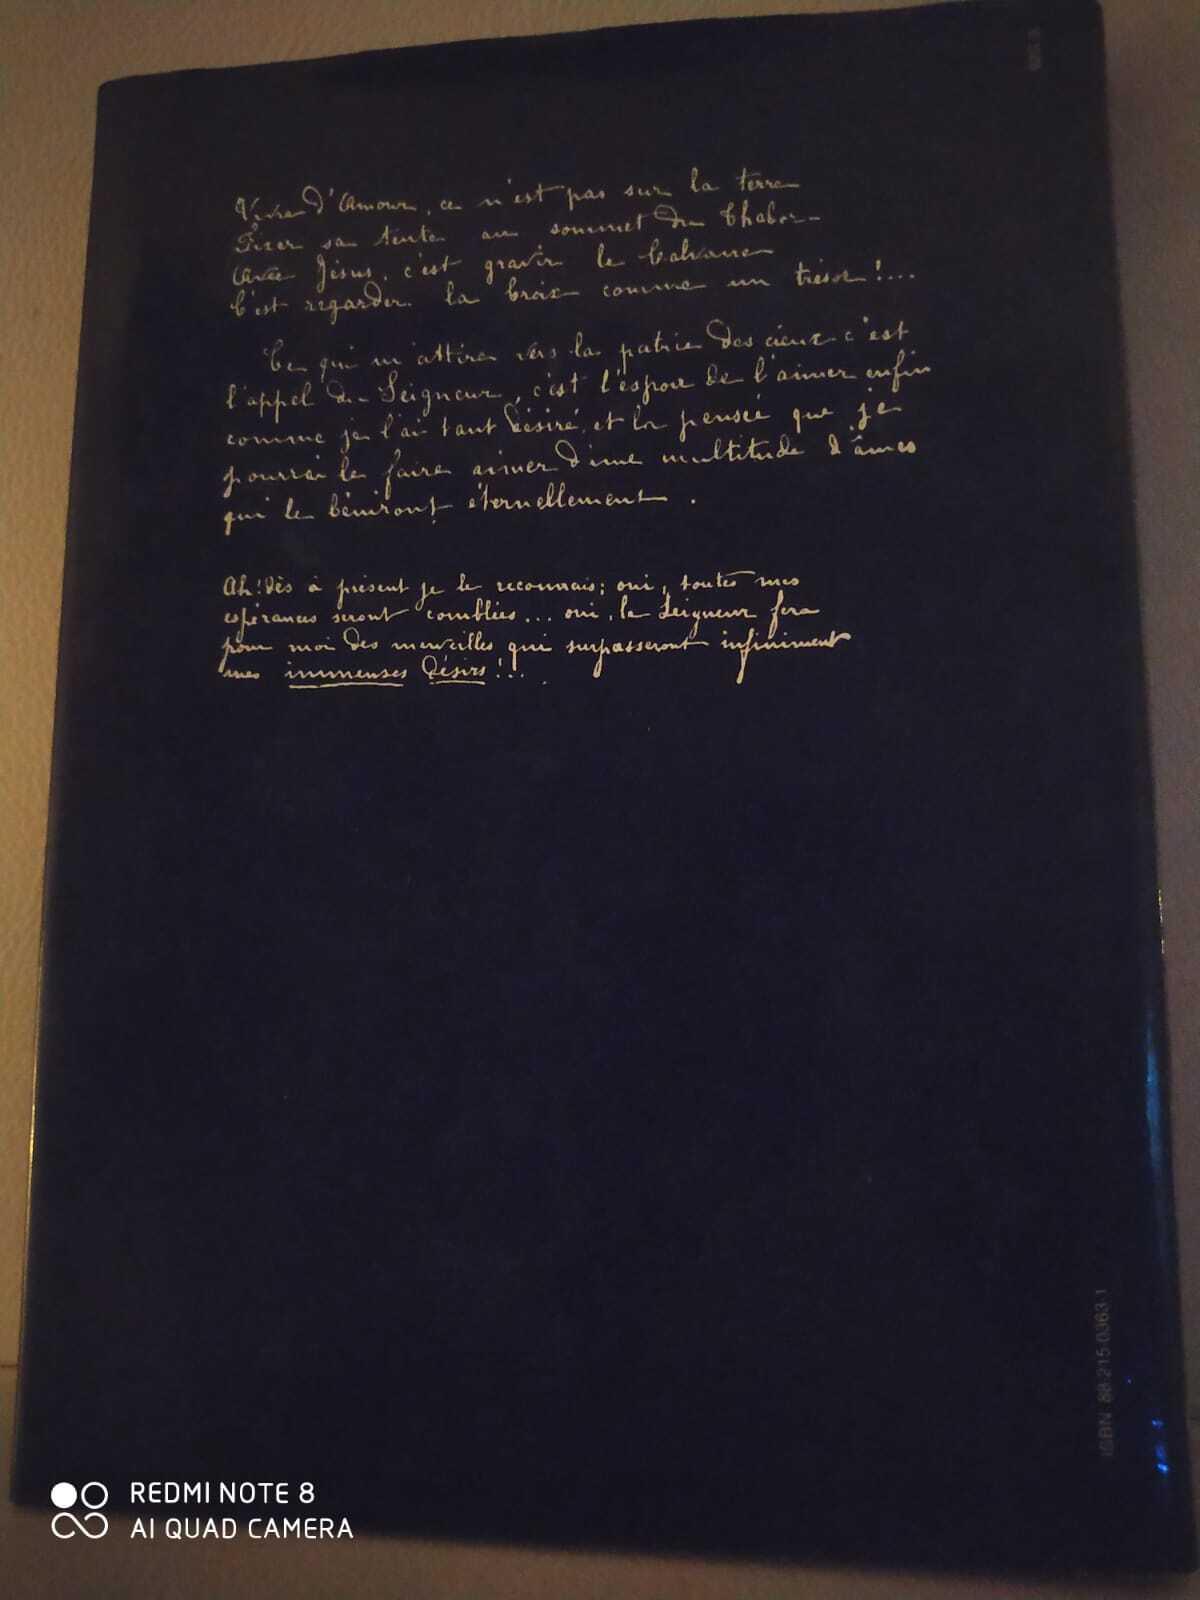 Vivre d'Amour, ce n'est pas sur la terre
Fixer sa tente au sommet du Thabor
Avec Jésus, c'est gravir le Calvaire
C'est regarder la Croix comme un trésor!...
Ce qui m'attire vers la patrie des cieux c'est
l'appel du Seigneur, c'est l'espoir de l'aimer enfin
comme je l'ai tant désiré, et la pensée que je
pourrai le faire aimer d'une multitude d'âmes
qui le béniront éternellement.
Ah! dès à présent je le reconnais; oui, toutes mes
espérances seront comblées... oui, le Seigneur fera
pour moi des merveilles qui surpasseront infiniment
mes immenses désirs!...
ISBN 88-215-0363-1
REDMI NOTE 8
AI QUAD CAMERA